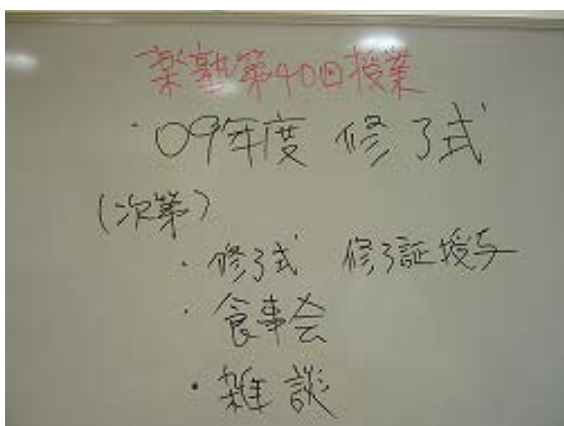 楽塾第40回授業
'09年度 修了式
(次第)
・修了式 修了証授与
・食事会
・雑談